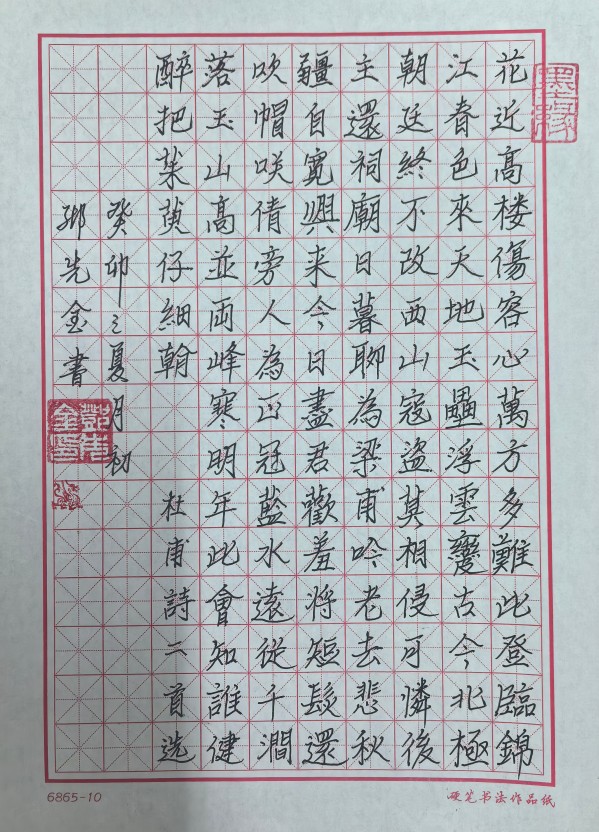 花近高楼傷客心萬方多難此登臨錦
江春色來天地玉壘浮雲變古今北極
朝廷終不改西山寇盜莫相侵可憐後
主還祠廟日暮聊為梁甫吟老去悲秋
疆自寬興来今日盡君歡羞將短髮還
吹帽咲倩旁人為正冠藍水遠從千澗
落玉山高並兩峰寒明年此會知誰健
醉把茱萸仔細翰 杜甫詩二首選
癸卯之夏月初
鄧先金書
墨缘
鄧先金印
6865-10
硬笔书法作品纸